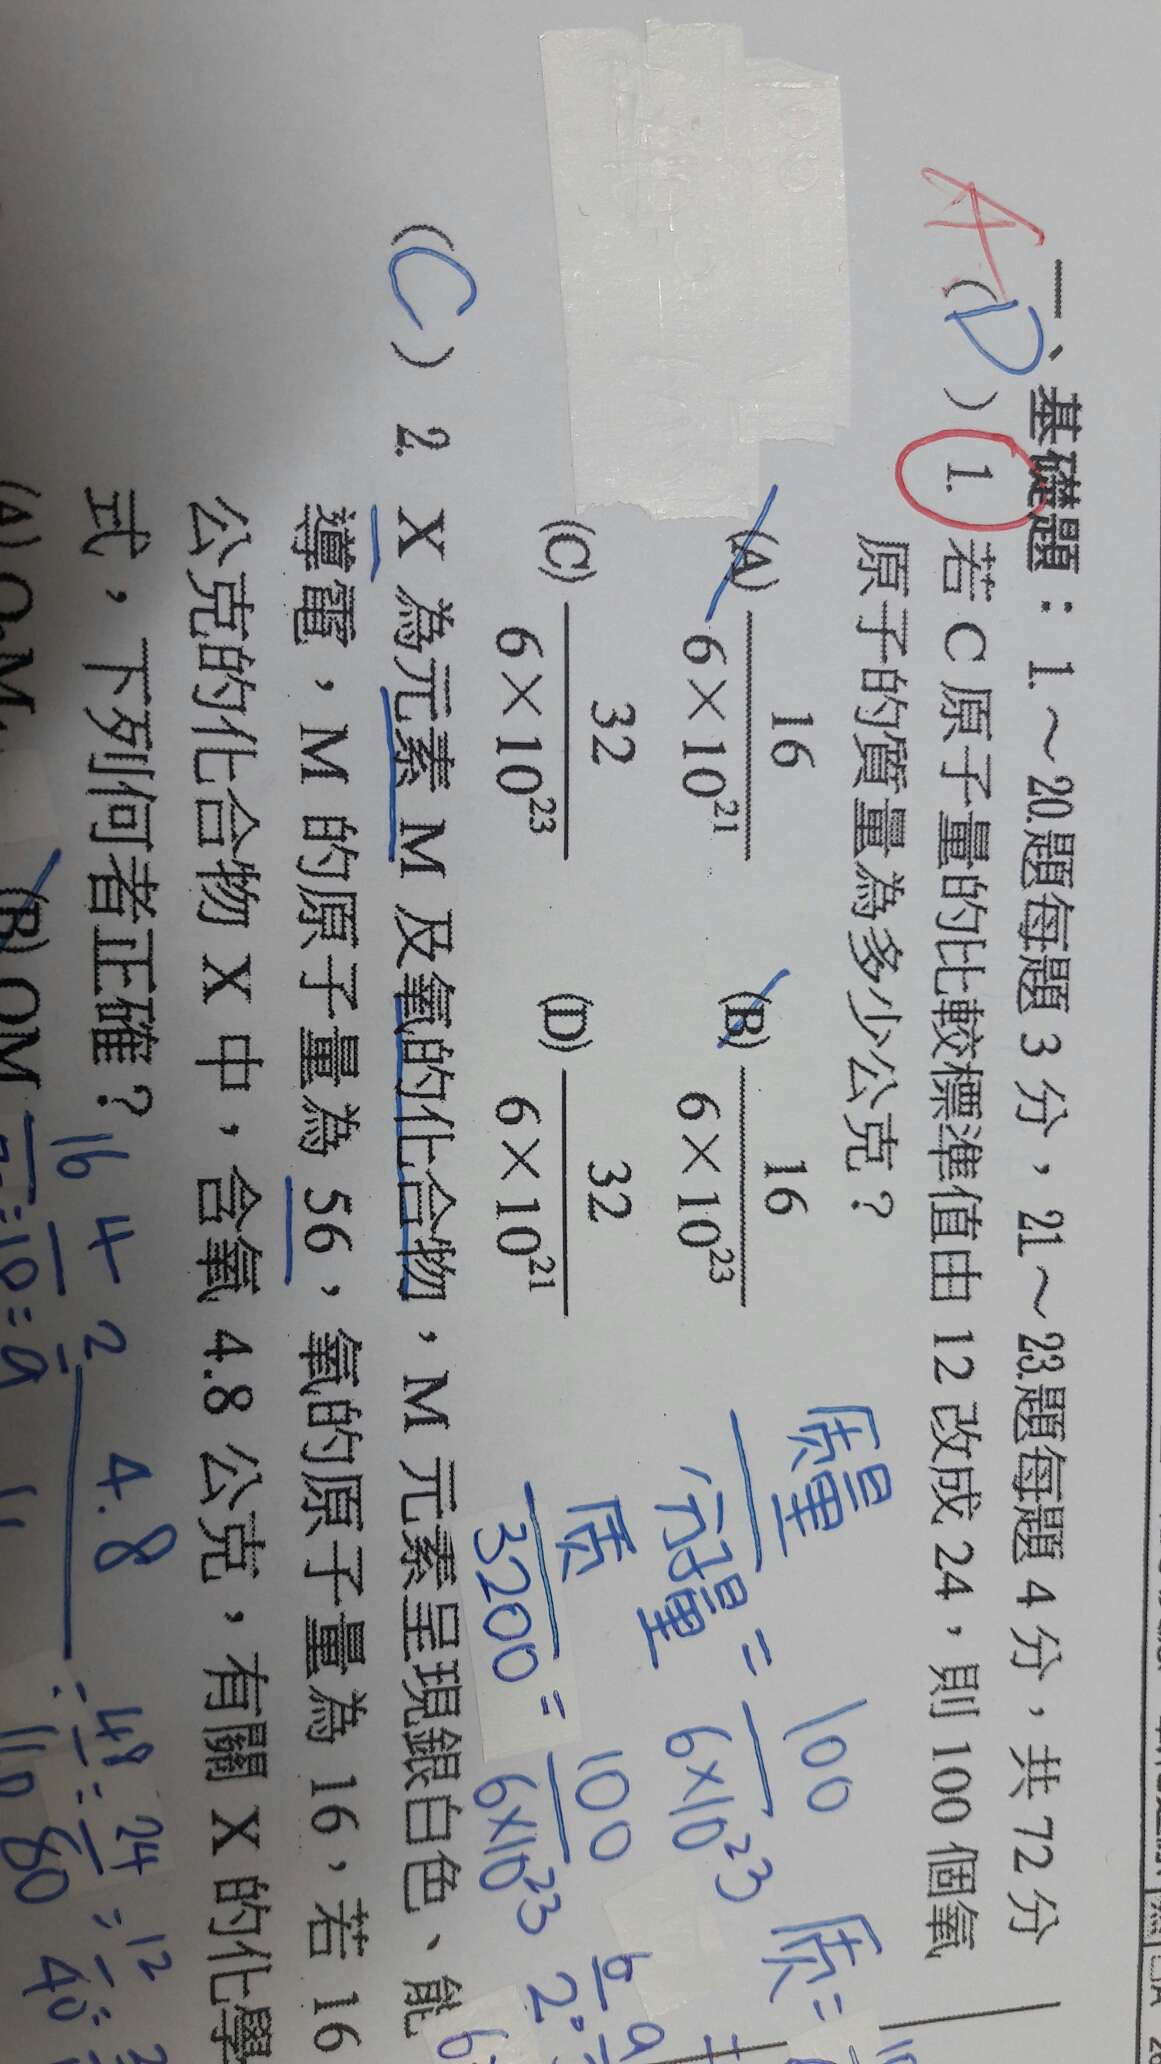 一、基礎題：1.～20.題每題 3 分，21～23.題每題 4 分，共 72 分
A
(D) 1. 若 C 原子量的比較標準值由 12 改成 24，則 100 個氧
原子的質量為多少公克？
(A) 16/6×10²¹ (B) 16/6×10²³
(C) 32/6×10²³ (D) 32/6×10²¹
质量/分子量 = 100/6×10²³
质/3200 = 100/6×10²³
质=
(C) 2. X 為元素 M 及氧的化合物，M 元素呈現銀白色、能
導電，M 的原子量為 56，氧的原子量為 16，若 16
公克的化合物 X 中，含氧 4.8 公克，有關 X 的化學
式，下列何者正確？
16 4 2 4.8
(B) OM